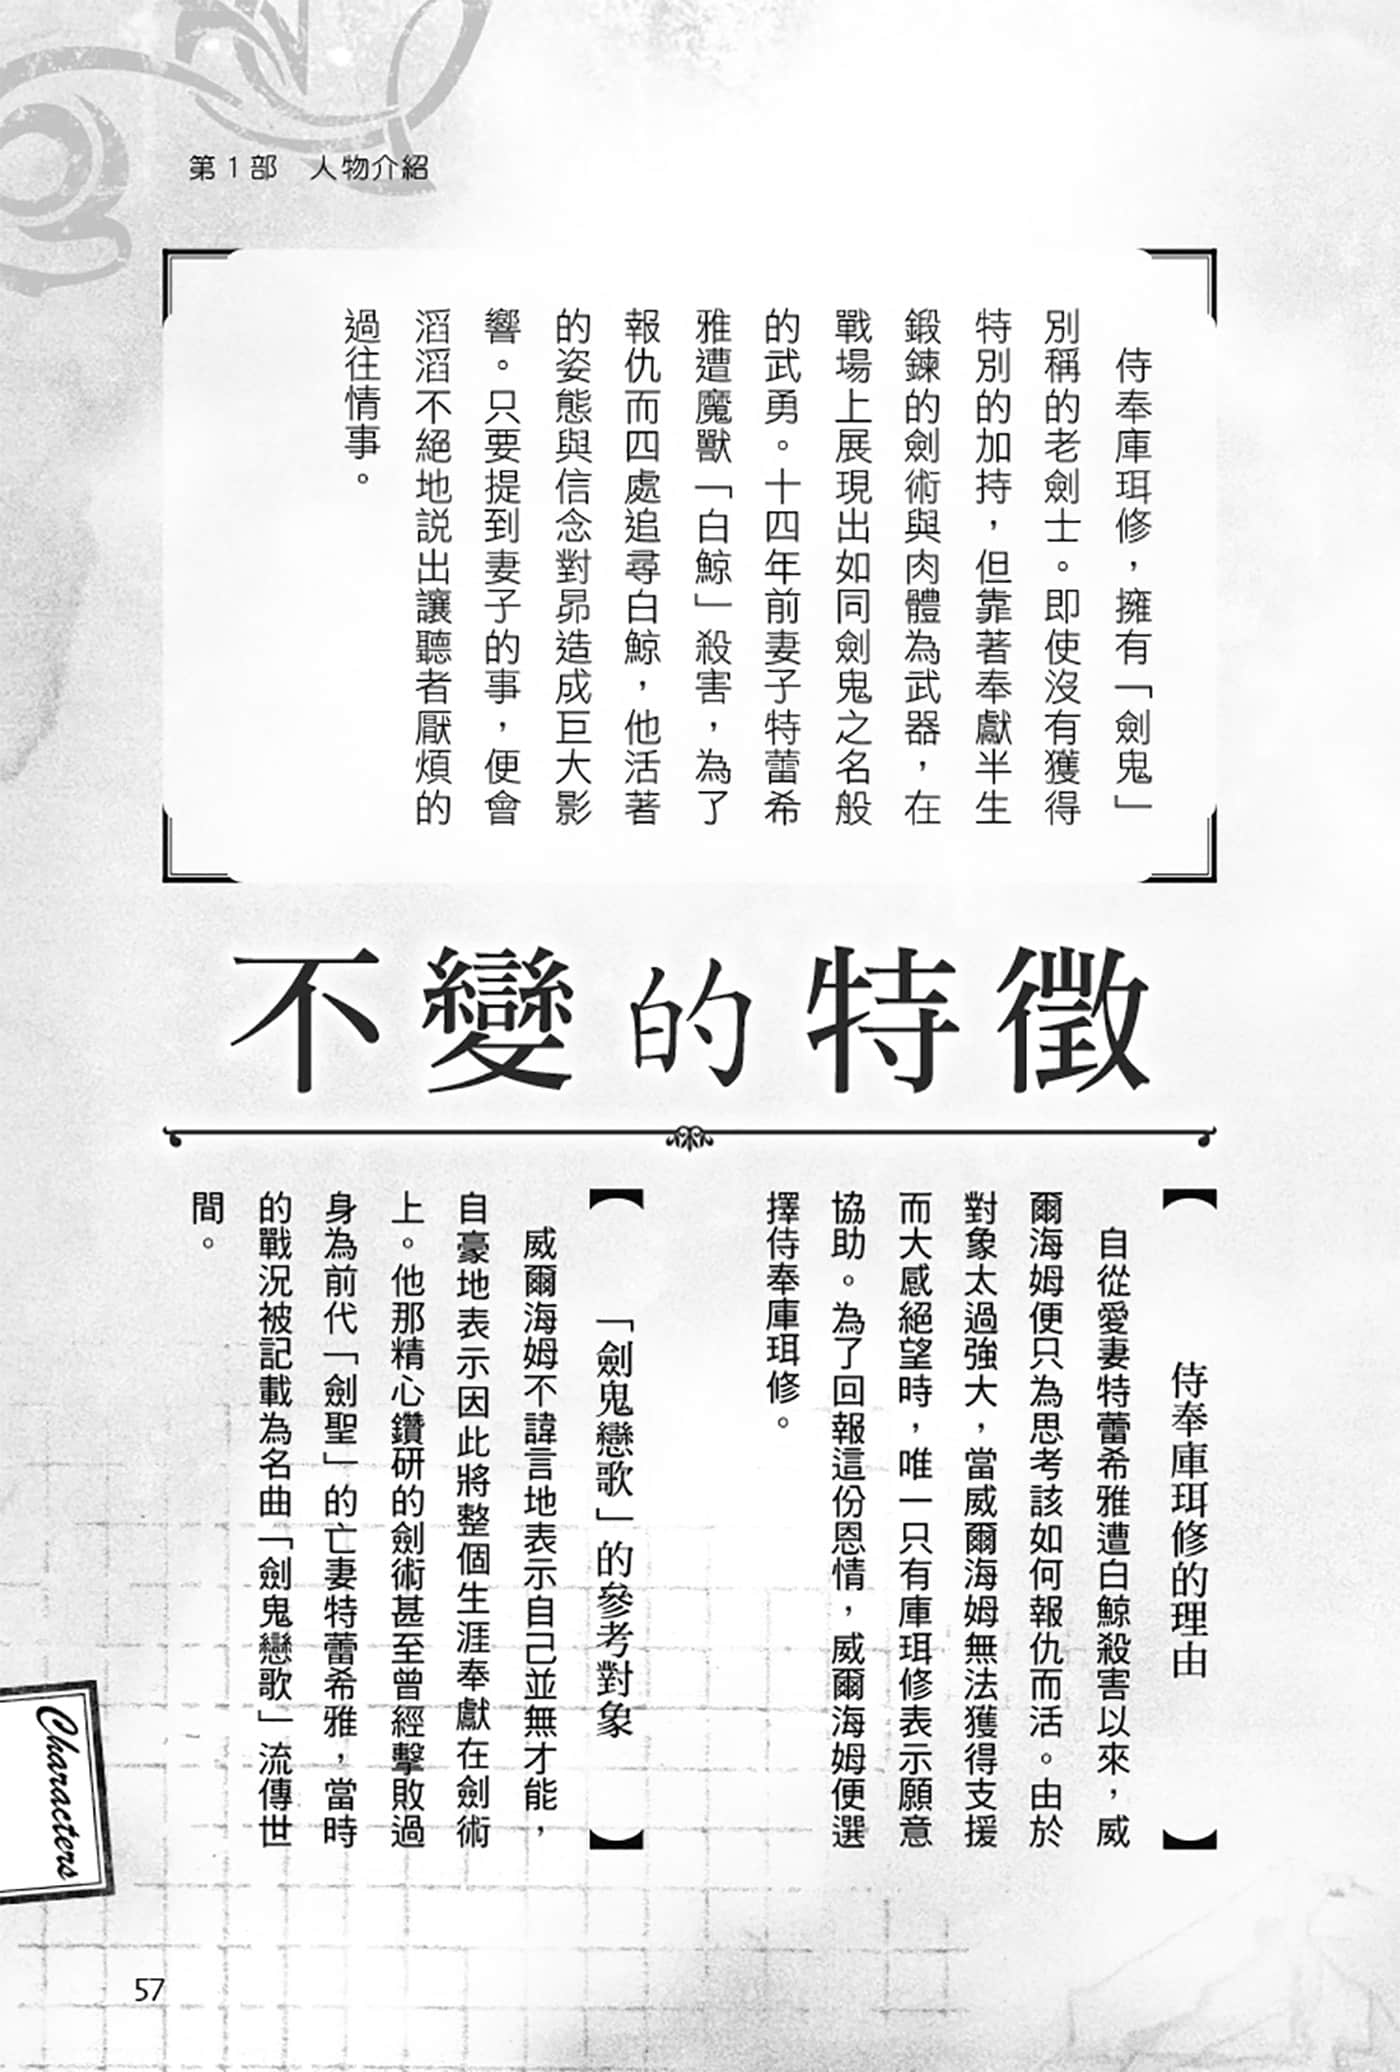 第1部　人物介紹
侍奉庫珥修，擁有「劍鬼」
別稱的老劍士。即使沒有獲得
特別的加持，但靠著奉獻半生
鍛鍊的劍術與肉體為武器，在
戰場上展現出如同劍鬼之名般
的武勇。十四年前妻子特蕾希
雅遭魔獸「白鯨」殺害，為了
報仇而四處追尋白鯨，他活著
的姿態與信念對昴造成巨大影
響。只要提到妻子的事，便會
滔滔不絕地説出讓聽者厭煩的
過往情事。
不變的特徵
【侍奉庫珥修的理由】
自從愛妻特蕾希雅遭白鯨殺害以來，威
爾海姆便只為思考該如何報仇而活。由於
對象太過強大，當威爾海姆無法獲得支援
而大感絕望時，唯一只有庫珥修表示願意
協助。為了回報這份恩情，威爾海姆便選
擇侍奉庫珥修。
【「劍鬼戀歌」的參考對象】
威爾海姆不諱言地表示自己並無才能，
自豪地表示因此將整個生涯奉獻在劍術
上。他那精心鑽研的劍術甚至曾經擊敗過
身為前代「劍聖」的亡妻特蕾希雅，當時
的戰況被記載為名曲「劍鬼戀歌」流傳世
間。
Characters
57